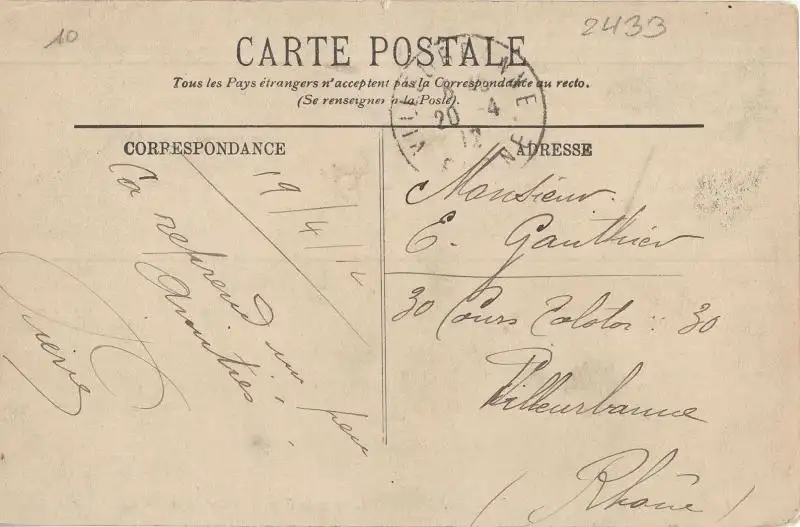 10
2433
CARTE POSTALE
Tous les Pays étrangers n'acceptent pas la Correspondance au recto.
(Se renseigner à la Poste).
CORRESPONDANCE
ADRESSE
20 -4
19/4/12
Ca reprend un peu
Amitiés
Pierre
Monsieur
E. Gauthier
30 Cours Tolstoi : 30
Villeurbanne
(Rhône)